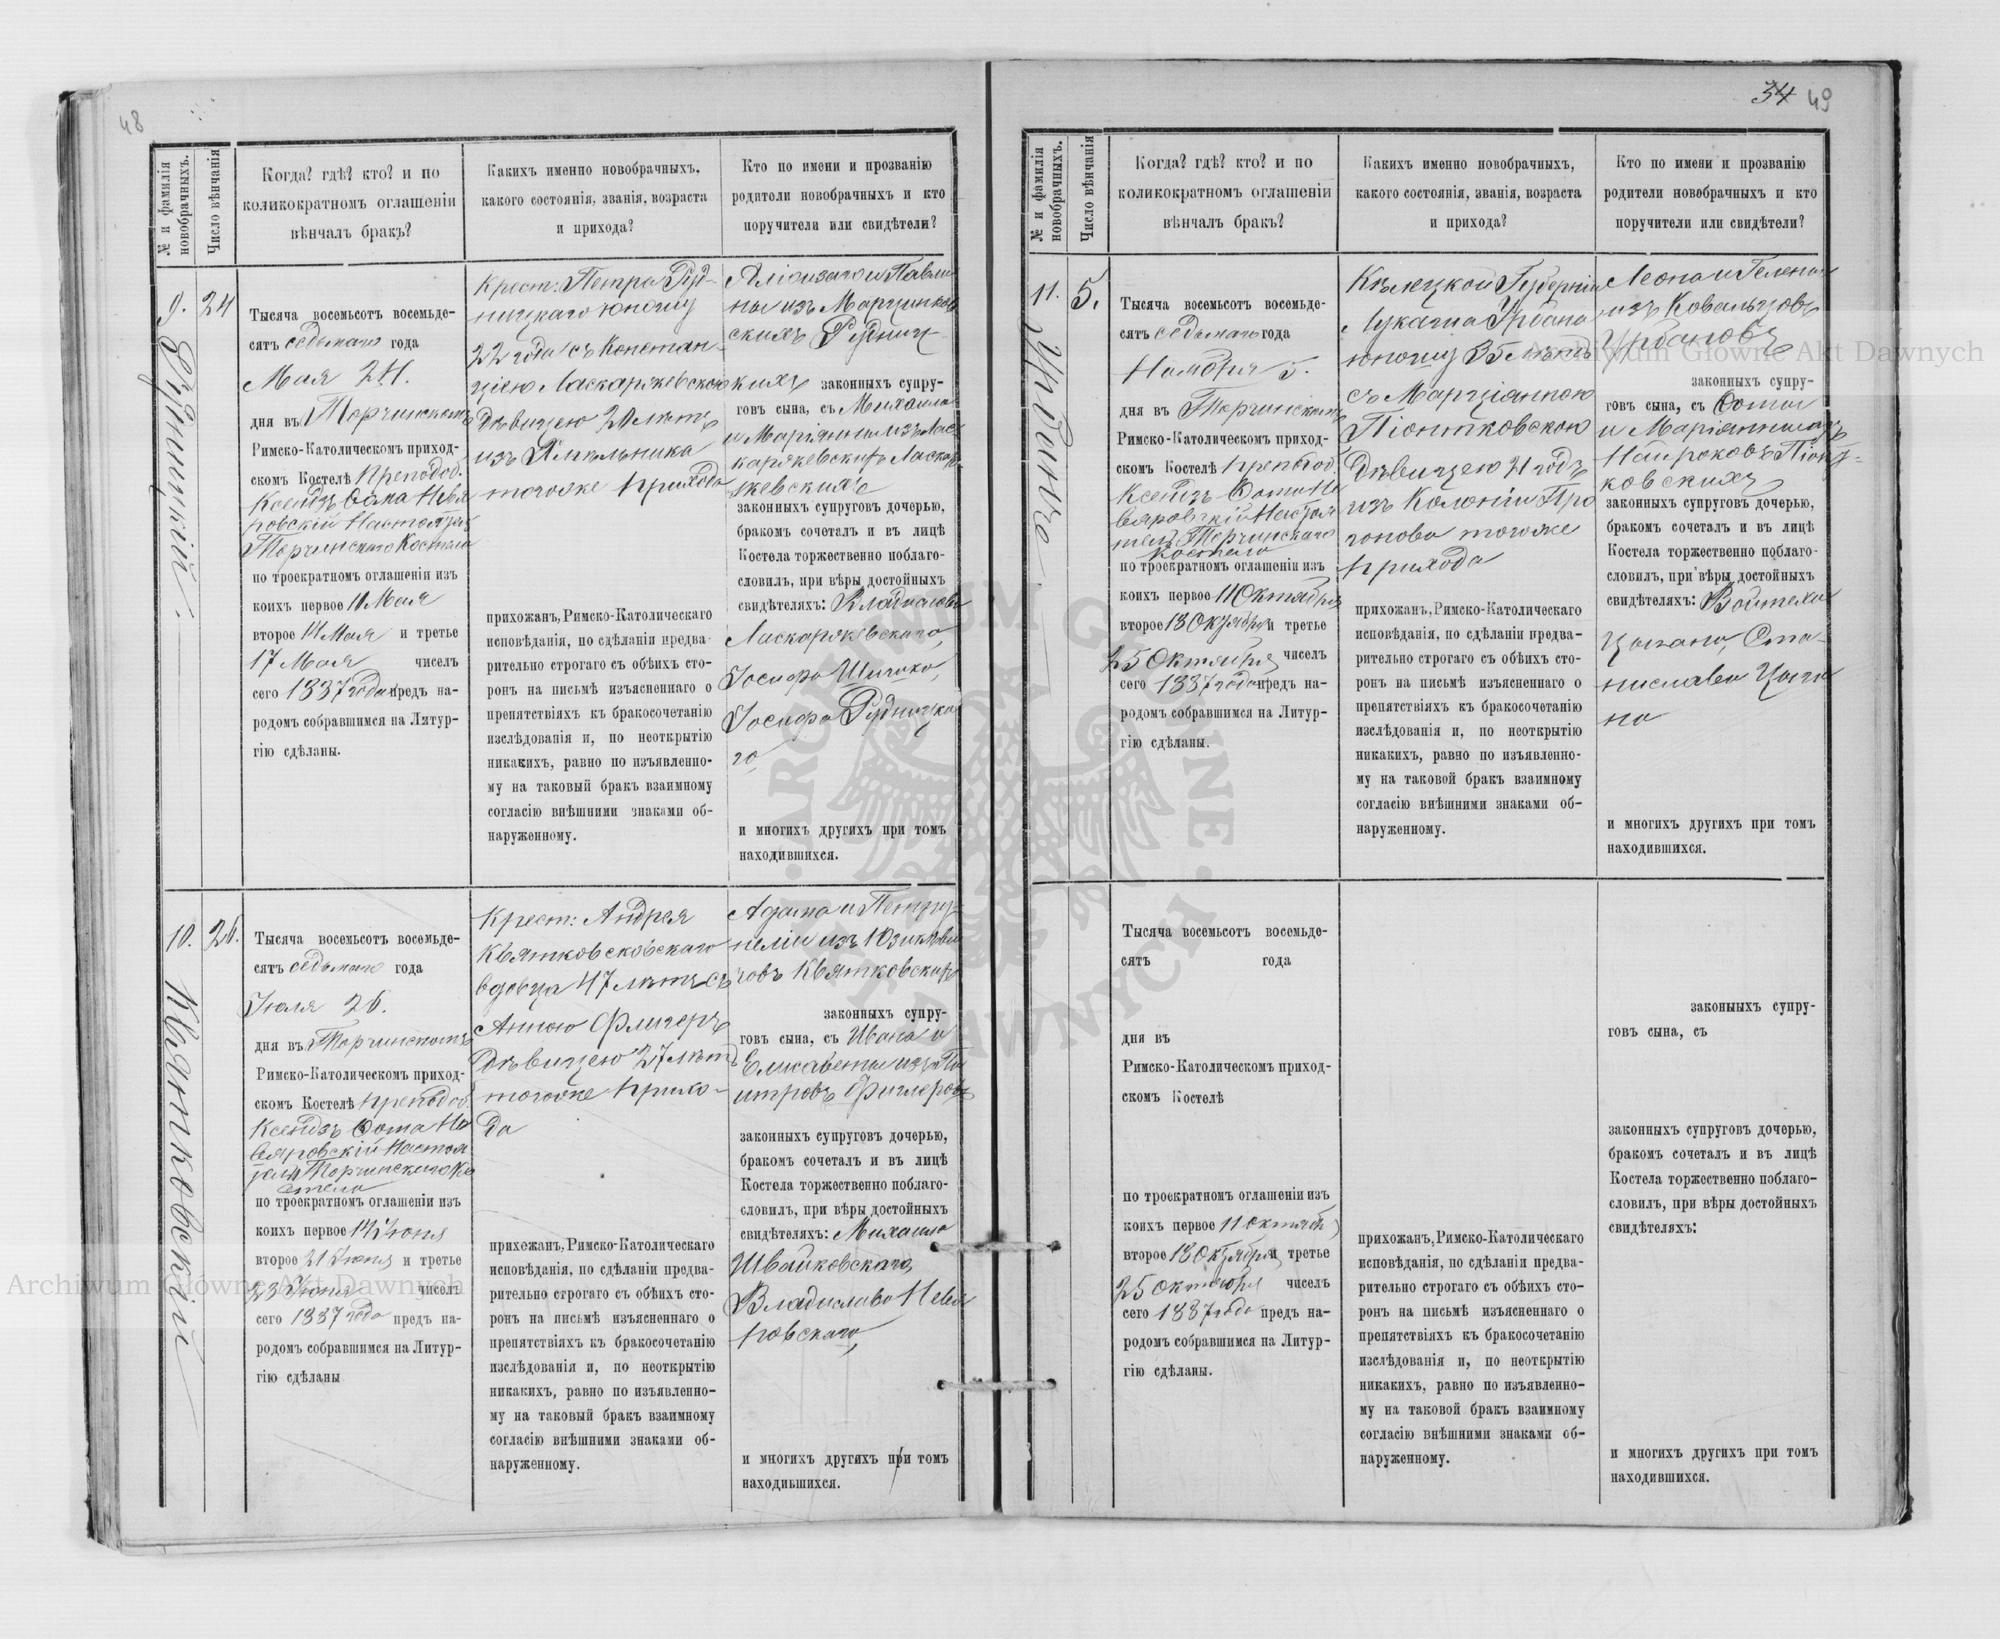 48
№ и фамилія новобрачныхъ.
Число вѣнчанія
Когда? гдѣ? кто? и по
коликократномъ оглашеніи
вѣнчалъ бракъ?
Какихъ именно новобрачныхъ,
какого состоянія, званія, возраста
и прихода?
Кто по имени и прозванію
родители новобрачныхъ и кто
поручители или свидѣтели?
9. Рудницкій.
24
Тысяча восемьсотъ восемьде-
сятъ седьмаго года
Мая 24.
дня въ Торчинскомъ
Римско-Католическомъ приход-
скомъ Костелѣ Преподоб.
Ксендзъ Ѳома
Торчинскаго Костела
по троекратномъ оглашеніи изъ
коихъ первое 10 Мая
второе 14 Мая и третье
17 Мая чиселъ
сего 1887 года предъ на-
родомъ собравшимся на Литур-
гію сдѣланы.
Крест: Петра Руд-
ницкаго юношу
22 года съ Констан-
ціею Ласкаржевскою
дѣвицею 20 лѣтъ
изъ
тогоже прихода
прихожанъ, Римско-Католическаго
исповѣданія, по сдѣланіи предва-
рительно строгаго съ обѣихъ сто-
ронъ на письмѣ изъясненнаго о
препятствіяхъ къ бракосочетанію
изслѣдованія и, по неоткрытію
никакихъ, равно по изъявленно-
му на таковый бракъ взаимному
согласію внѣшними знаками об-
наруженному.
Алоизаго и Павли-
ны изъ Марцинков
скихъ Рудниц-
кихъ законныхъ супру-
говъ сына, съ Михаила
и Маріянны изъ Лас-
каржевскихъ Ласкар-
жевскихъ
законныхъ супруговъ дочерью,
бракомъ сочеталъ и въ лицѣ
Костела торжественно поблаго-
словилъ, при вѣры достойныхъ
свидѣтеляхъ:
Ласкаржевскаго,
Іосифа
Іосифа Рудницка
го,
и многихъ другихъ при томъ
находившихся.
10. Квятковскій
26.
Тысяча восемьсотъ восемьде-
сятъ седьмаго года
Іюля 26.
дня въ Торчинскомъ
Римско-Католическомъ приход-
скомъ Костелѣ Преподоб.
Ксендзъ Ѳома Не
вяровскій Настоя
тель Торчинскаго Ко
стела
по троекратномъ оглашеніи изъ
коихъ первое 14 Іюня
второе 21 Іюня и третье
23 Іюня чиселъ
сего 1887 года предъ на-
родомъ собравшимся на Литур-
гію сдѣланы
Крест: Андрея
Квятковсковскаго
вдовца 47 лѣтъ съ
Анною Флигеръ
дѣвицею 27 лѣтъ
тогоже прихо-
да
прихожанъ, Римско-Католическаго
исповѣданія, по сдѣланіи предва-
рительно строгаго съ обѣихъ сто-
ронъ на письмѣ изъясненнаго о
препятствіяхъ къ бракосочетанію
изслѣдованія и, по неоткрытію
никакихъ, равно по изъявленно-
му на таковый бракъ взаимному
согласію внѣшними знаками об-
наруженному.
Адама и Петру-
неліи изъ
Квятковскихъ
законныхъ супру-
говъ сына, съ Ивана и
Елисаветы изъ
законныхъ супруговъ дочерью,
бракомъ сочеталъ и въ лицѣ
Костела торжественно поблаго-
словилъ, при вѣры достойныхъ
свидѣтеляхъ: Михаила
Швайковскаго,
Владислава Невя
ровскаго,
и многихъ другихъ при томъ
находившихся.
34 49
№ и фамилія новобрачныхъ.
Число вѣнчанія
Когда? гдѣ? кто? и по
коликократномъ оглашеніи
вѣнчалъ бракъ?
Какихъ именно новобрачныхъ,
какого состоянія, званія, возраста
и прихода?
Кто по имени и прозванію
родители новобрачныхъ и кто
поручители или свидѣтели?
11.
5.
Тысяча восемьсотъ восемьде-
сятъ седьмаго года
Ноября 5.
дня въ Торчинскомъ
Римско-Католическомъ приход-
скомъ Костелѣ Преподоб.
Ксендзъ Ѳома Не
вяровскій Настоя
тель Торчинскаго
Костела
по троекратномъ оглашеніи изъ
коихъ первое 11 Октября
второе 18 Октября и третье
25 Октября чиселъ
сего 1887 года предъ на-
родомъ собравшимся на Литур-
гію сдѣланы.
Кѣлецкой Губерніи
Лукаша Урбана
юношу 35 лѣтъ
съ Марціянною
Піонтковскою
дѣвицею 21 годъ
изъ Колоніи
тогоже
прихода
прихожанъ, Римско-Католическаго
исповѣданія, по сдѣланіи предва-
рительно строгаго съ обѣихъ сто-
ронъ на письмѣ изъясненнаго о
препятствіяхъ къ бракосочетанію
изслѣдованія и, по неоткрытію
никакихъ, равно по изъявленно-
му на таковой бракъ взаимному
согласію внѣшними знаками об-
наруженному.
Леона и Гелены
изъ Ковальцовъ
Урбановъ
законныхъ супру-
говъ сына, съ Ѳомы
и Маріянны изъ
Піонт-
ковскихъ
законныхъ супруговъ дочерью,
бракомъ сочеталъ и въ лицѣ
Костела торжественно поблаго-
словилъ, при вѣры достойныхъ
свидѣтеляхъ: Войтеха
Цыгана, Ста-
нислава Цыга
на
и многихъ другихъ при томъ
находившихся.
Тысяча восемьсотъ восемьде-
сятъ года
дня въ
Римско-Католическомъ приход-
скомъ Костелѣ
по троекратномъ оглашеніи изъ
коихъ первое 11 Октяб
второе 18 Октября и третье
25 Октября чиселъ
сего 1887 года предъ на-
родомъ собравшимся на Литур-
гію сдѣланы.
прихожанъ, Римско-Католическаго
исповѣданія, по сдѣланіи предва-
рительно строгаго съ обѣихъ сто-
ронъ на письмѣ изъясненнаго о
препятствіяхъ къ бракосочетанію
изслѣдованія и, по неоткрытію
никакихъ, равно по изъявленно-
му на таковой бракъ взаимному
согласію внѣшними знаками об-
наруженному.
законныхъ супру-
говъ сына, съ
законныхъ супруговъ дочерью,
бракомъ сочеталъ и въ лицѣ
Костела торжественно поблаго-
словилъ, при вѣры достойныхъ
свидѣтеляхъ:
и многихъ другихъ при томъ
находившихся.
Archiwum Główne Akt Dawnych
Archiwum Główne Akt Dawnych
ARCHIWUM GŁÓWNE AKT DAWNYCH